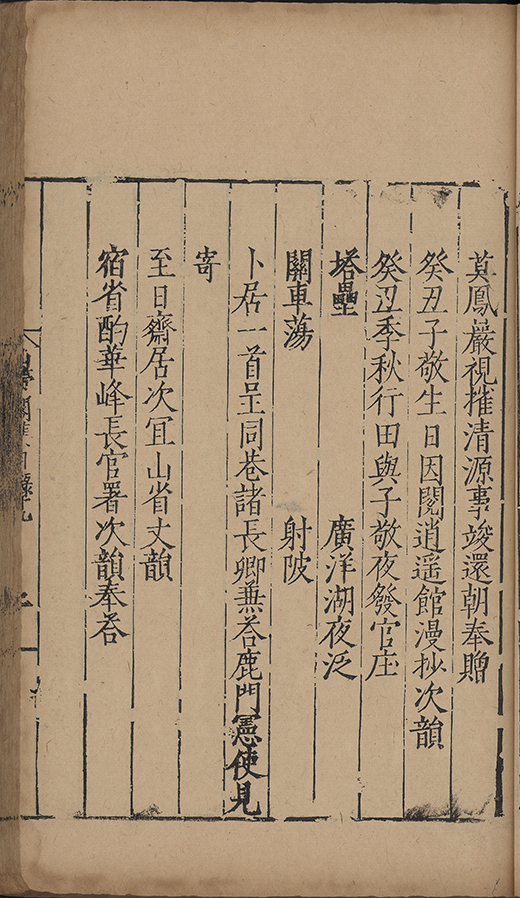 莫鳳巖視搉清源事竣還朝奉贈
癸丑子敬生日因閱逍遥館漫抄次韻
癸丑季秋行田與子敬夜發官庄
塔壘　廣洋湖夜泛
關車蕩　射陂
卜居一首呈同巷諸長卿兼荅鹿門憲使見
寄
至日齋居次冝山省丈韻
宿省酌華峰長官署次韻奉荅